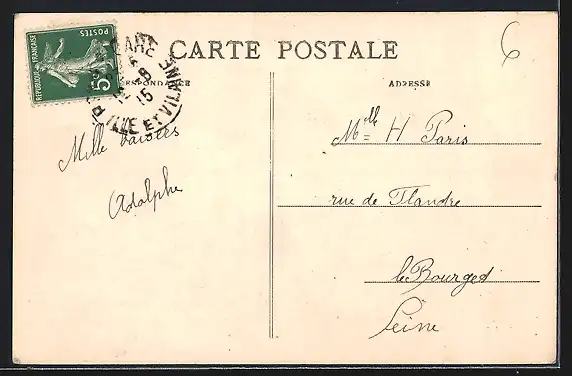 CARTE POSTALE
RÉPUBLIQUE FRANÇAISE
POSTES
5c
GARE
15
ILLE ET VILAINE
RESPONDANCE
ADRESSE
6
Mille baisers
Adolphe
Mlle H Paris
rue de Flandre
le Bourget
Seine